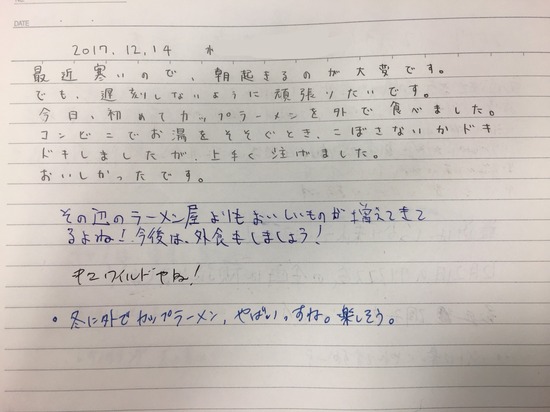 DATE
2017.12.14 木
最近寒いので、朝起きるのが大変です。
でも、遅刻しないように頑張りたいです。
今日、初めてカップラーメンを外で食べました。
コンビニでお湯をそそぐとき、こぼさないかドキ
ドキしましたが、上手く注げました。
おいしかったです。
その辺のラーメン屋よりもおいしいものが増えてきて
るよね！今後は、外食もしましょう！
ワイルドやね！
・冬に外でカップラーメン、やばいっすね。楽しそう。